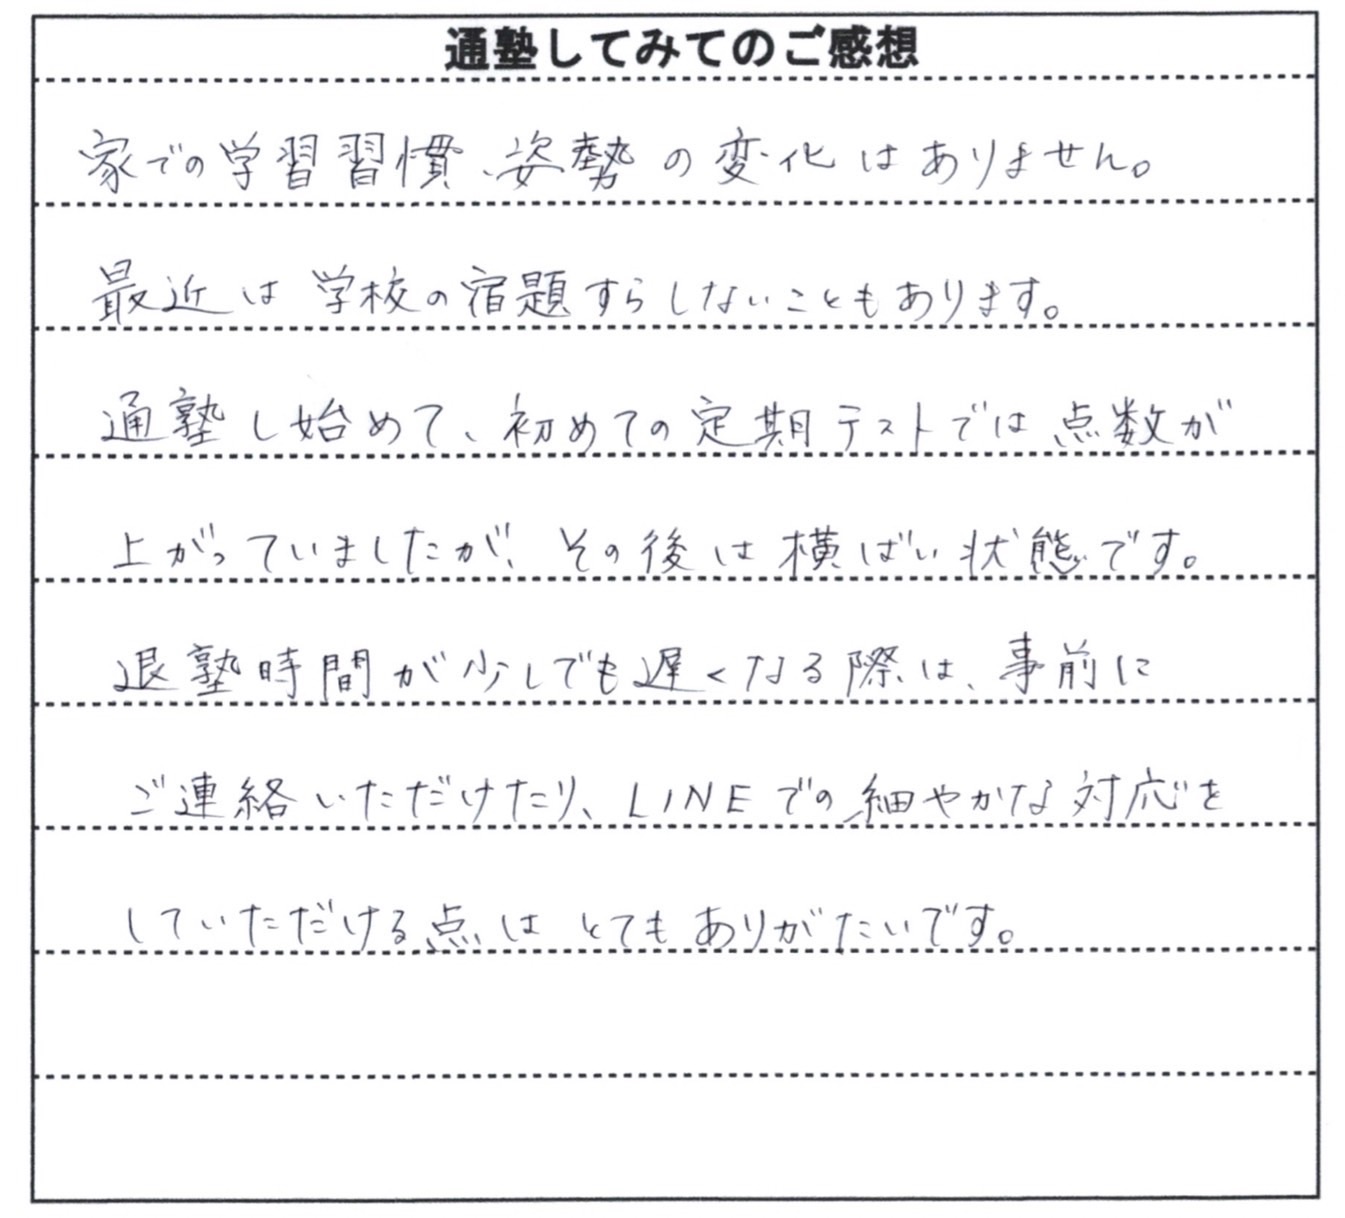 通塾してみてのご感想
家での学習習慣、姿勢の変化はありません。
最近は学校の宿題すらしないこともあります。
通塾し始めて、初めての定期テストでは点数が
上がっていましたが、その後は横ばい状態です。
退塾時間が少しでも遅くなる際は、事前に
ご連絡いただけたり、LINEでの細やかな対応を
していただける点はとてもありがたいです。